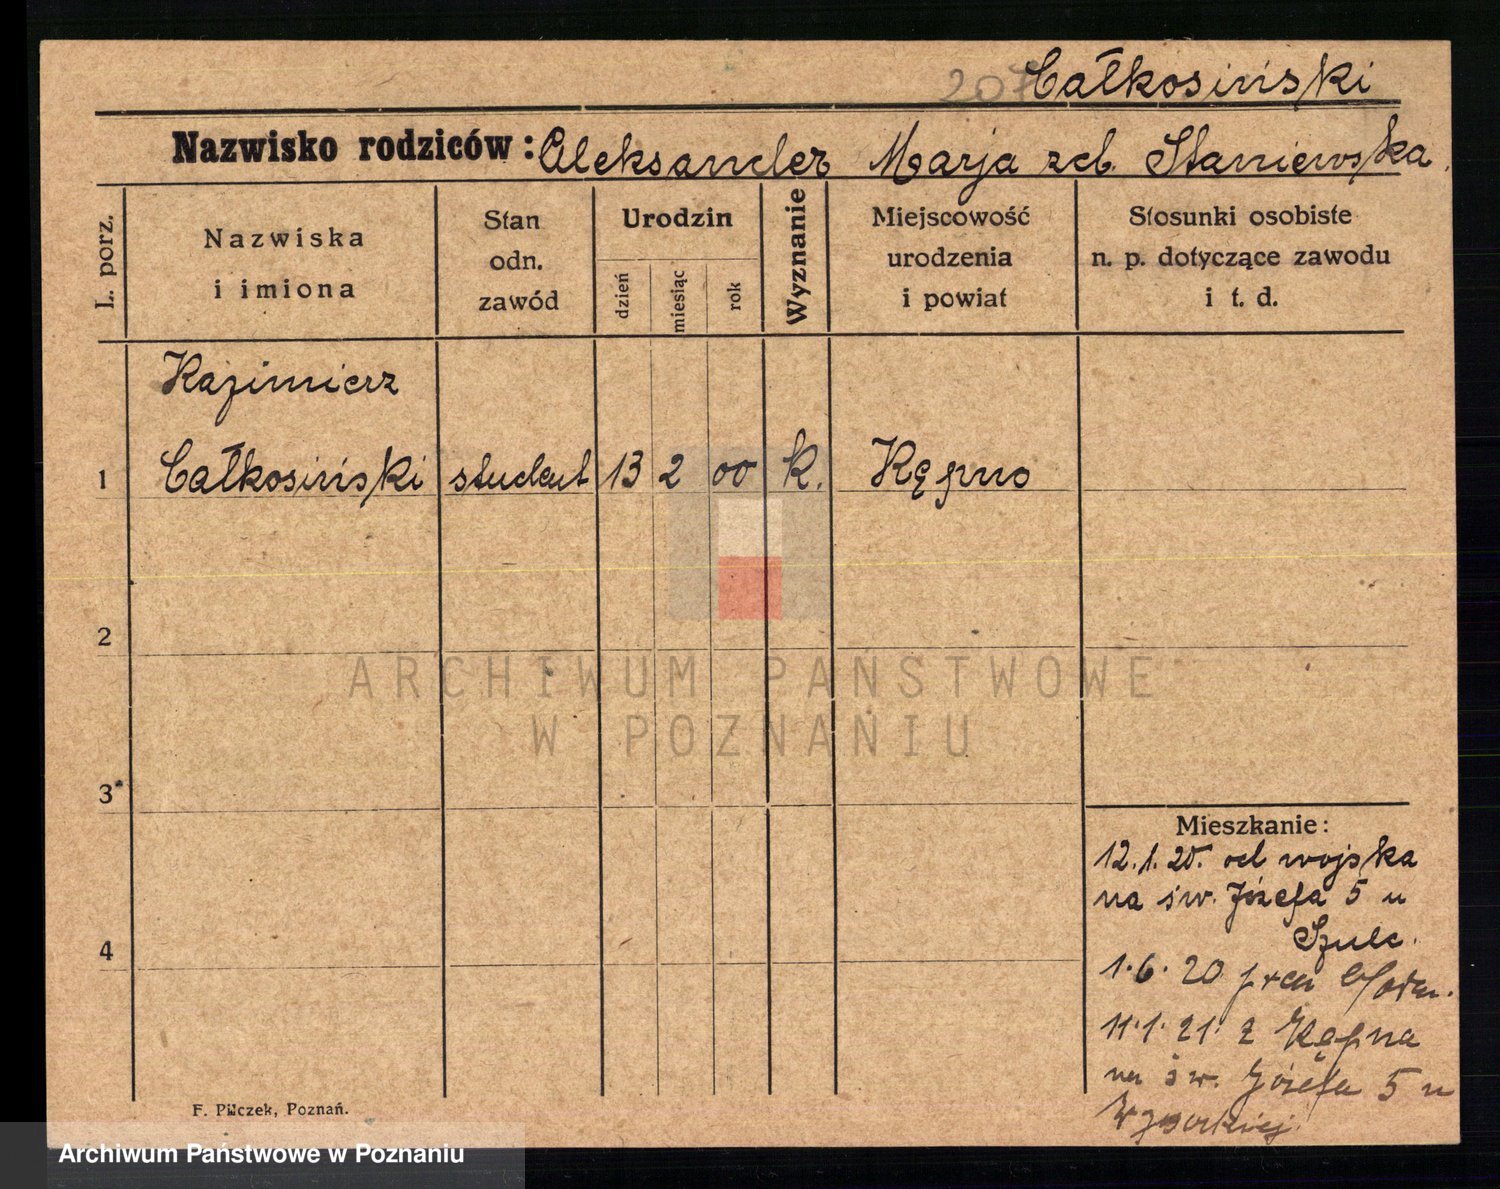 207 Całkosiński
Nazwisko rodziców: Aleksander Marja zd. Staniewska
L. porz.
Nazwiska
i imiona
Stan
odn.
zawód
Urodzin
dzień
miesiąc
rok
Wyznanie
Miejscowość
urodzenia
i powiat
Stosunki osobiste
n. p. dotyczące zawodu
i t. d.
Kazimierz
1 Całkosiński student 13 2 00 k. Kępno
2
ARCHIWUM PAŃSTWOWE
W POZNANIU
3
Mieszkanie:
12.1.20. od wojska
na św. Józefa 5 u
Szulc.
4
1.6.20
11.1.21. z Kępna
na św. Józefa 5 u
F. Pilczek, Poznań.
Archiwum Państwowe w Poznaniu